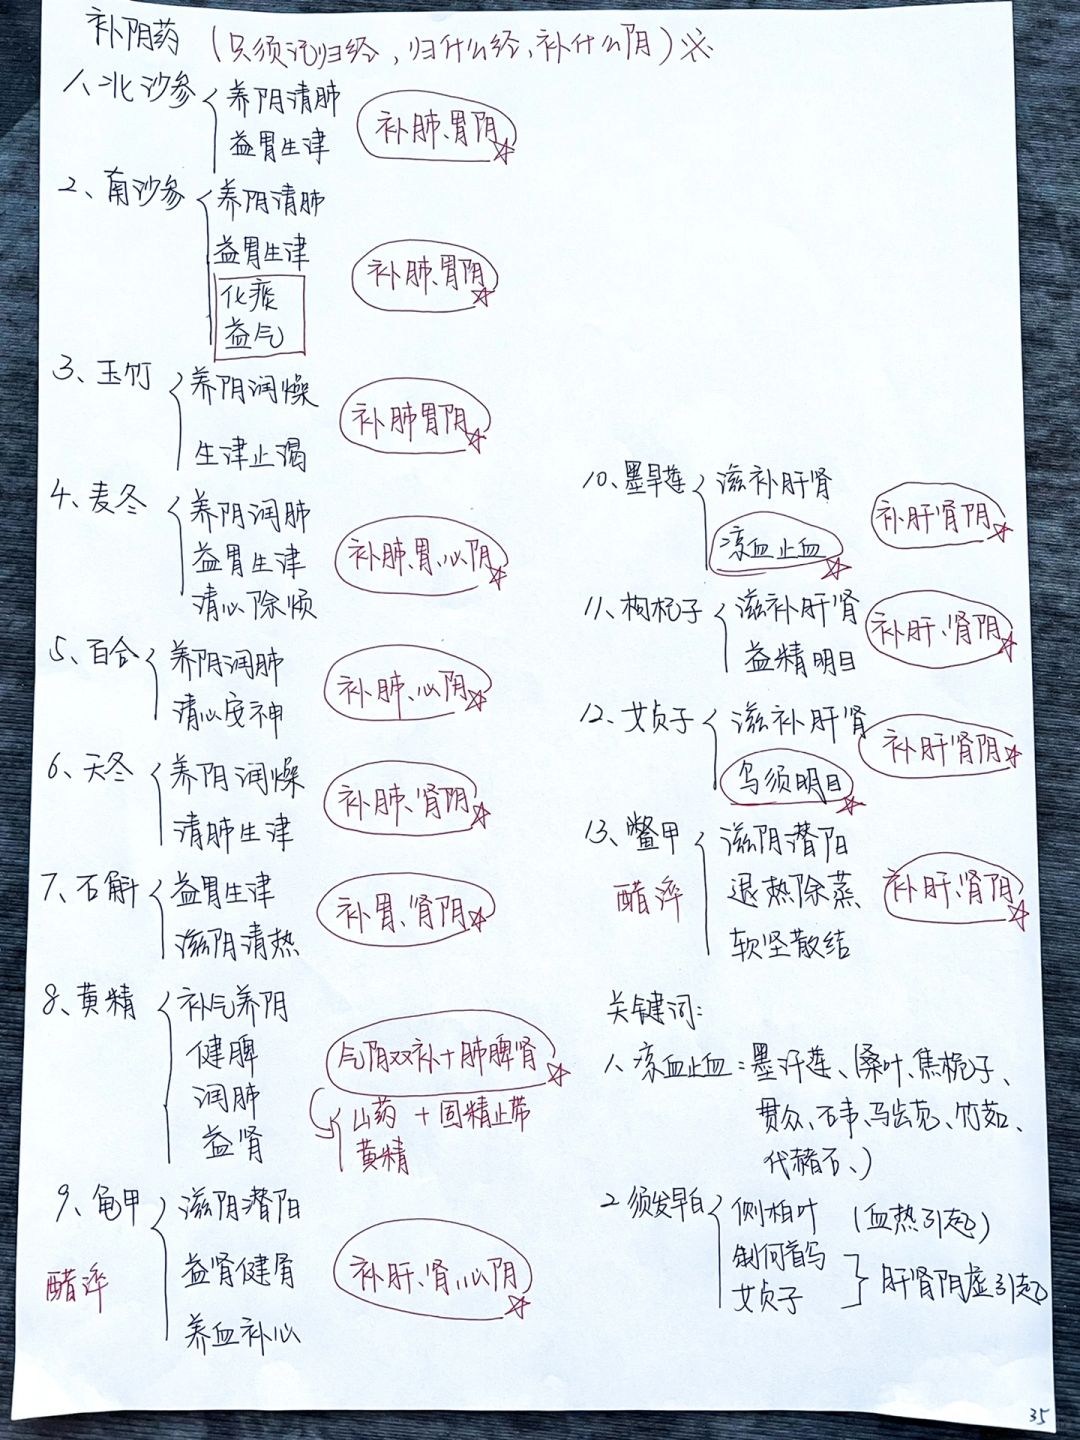 补阴药 (只须记归经,归什么经,补什么阴)※
1、北沙参 养阴清肺
益胃生津
补肺、胃阴☆
2、南沙参 养阴清肺
益胃生津
化痰
益气
补肺、胃阴☆
3、玉竹 养阴润燥
生津止渴
补肺胃阴☆
4、麦冬 养阴润肺
益胃生津
清心除烦
补肺、胃、心阴☆
5、百合 养阴润肺
清心安神
补肺、心阴☆
6、天冬 养阴润燥
清肺生津
补肺、肾阴☆
7、石斛 益胃生津
滋阴清热
补胃、肾阴☆
8、黄精 补气养阴
健脾
润肺
益肾
气阴双补+肺脾肾☆
山药 + 固精止带
黄精
9、龟甲 滋阴潜阳
醋淬 益肾健骨
养血补心
补肝、肾、心阴☆
10、墨旱莲 滋补肝肾
凉血止血☆
补肝肾阴☆
11、枸杞子 滋补肝肾
益精明目
补肝、肾阴☆
12、女贞子 滋补肝肾
乌须明目☆
补肝肾阴☆
13、鳖甲 滋阴潜阳
醋淬 退热除蒸
软坚散结
补肝、肾阴☆
关键词:
1、凉血止血:墨汗莲、(桑叶、焦栀子、
贯众、石韦、马齿苋、竹茹、
代赭石、)
2 须发早白 侧柏叶 (血热引起)
制何首乌
女贞子
肝肾阴虚引起
35